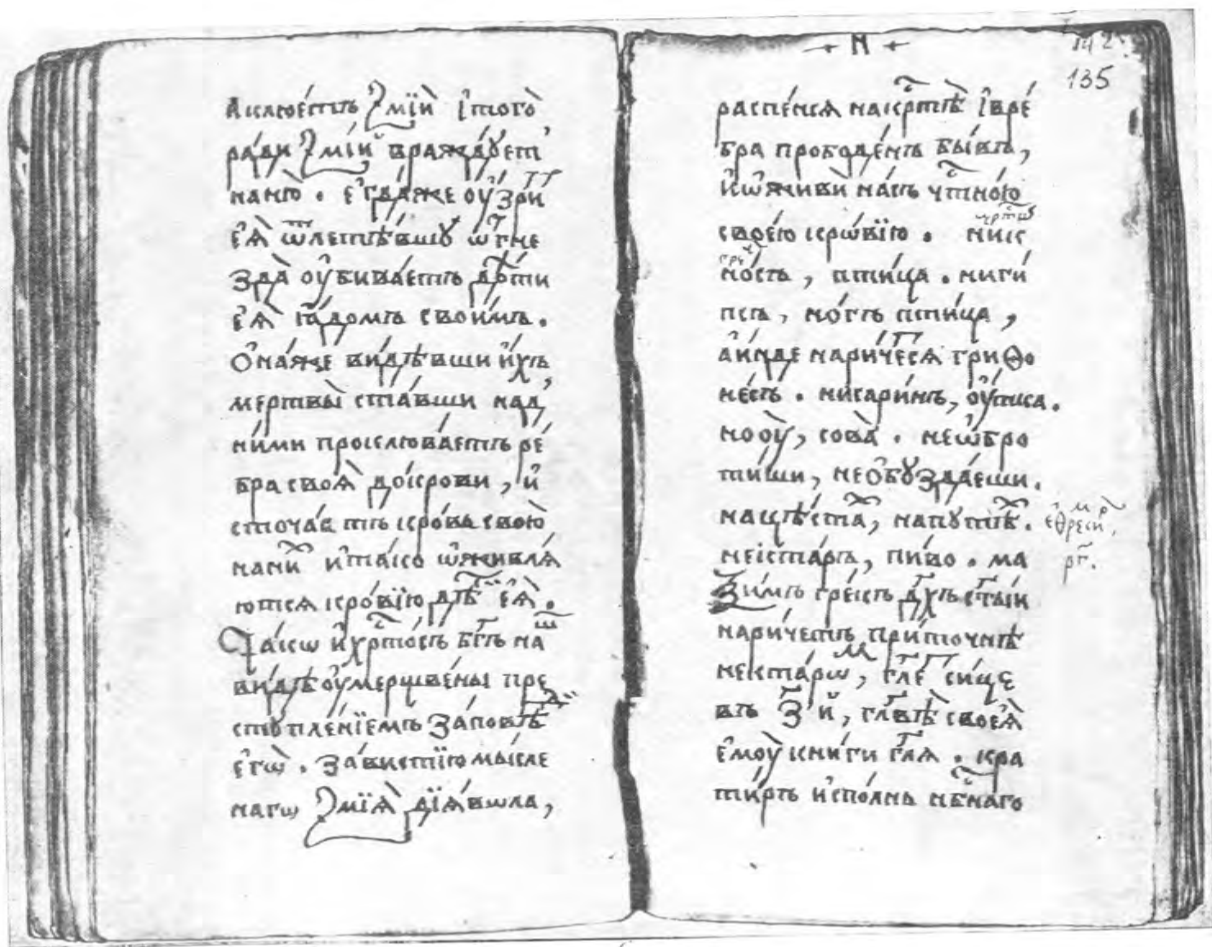 а клюе́тъ ѕмїѝ і҆ того̀
ра́ди ѕмі́й враждꙋ́ет
на ню̀. є҆гда́же оу҆́зри
є҆ѧ̀ ѿлетѣ́вшꙋ ѿ гне
зда̀ оу҆бива́етъ дѣ́ти
є҆ѧ̀ ꙗ҆́домъ свои́мъ.
ѻ҆на́же ви́дѣвши и҆́хъ
мертвы̀ ста́вши над
ни́ми проклюва́етъ ре́
бра своѧ̀ до́крови, и҆
сточа́етъ кро́вь свою̀
на ни́х и҆ та́ко ѡ҆живлѧ́
ютсѧ кро́вїю дѣ́ти є҆ѧ̀.
Та́кѡ и҆ хр҇то́съ бг҃ъ на́ш
ви́дѣ оу҆мерщве́ны пре
стꙋпле́нїемъ за́повѣди
є҆гѡ̀. за́вистїю мы́сле
нагѡ ѕмїѧ̀ дїѧ́вола,
н
142
135
распе́нсѧ на кр҇тѣ̀ і҆ в ре́
бра прободе́нъ бы́въ,
и҆ ѡ҆живѝ на́съ чт҇но́ю
свое́ю кро́вїю. ник
но́съ, пти́ца. ниги́
псъ, но́гъ пти́ца,
а҆и҆́нде нариче́сѧ грѵѳо
не́съ. никари́мъ, оу҆́тка.
ноꙋ́, сова̀. неѡ҆бро
ти́ши, не ѻ҆бꙋзда́еши.
на цѣ́стах, на пꙋте́х.
не́ктаръ, пи́во. ма
ѯи́мъ гре́къ дх҃ъ ст҃ы́и
нарича́етъ при́точнѣ
не́ктаром, гл҃е си́це
въ з҃ й, главѣ̀ своеѧ̀
є҆моꙋ̀ кни́ги гл҃ѧ. кра
ти́ръ и҆спо́лнь нб҇наго